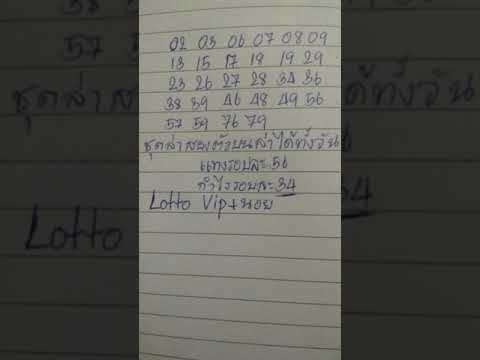 02 03 06 07 08 09
13 15 17 18 19 29
23 26 27 28 34 36
38 39 46 48 49 56
57 59 76 79
ชุดล่าสองตัวบนล่าได้ทั้งวัน
แทงรอบละ 56
กำไรรอบละ 34
Lotto Vip+นอย